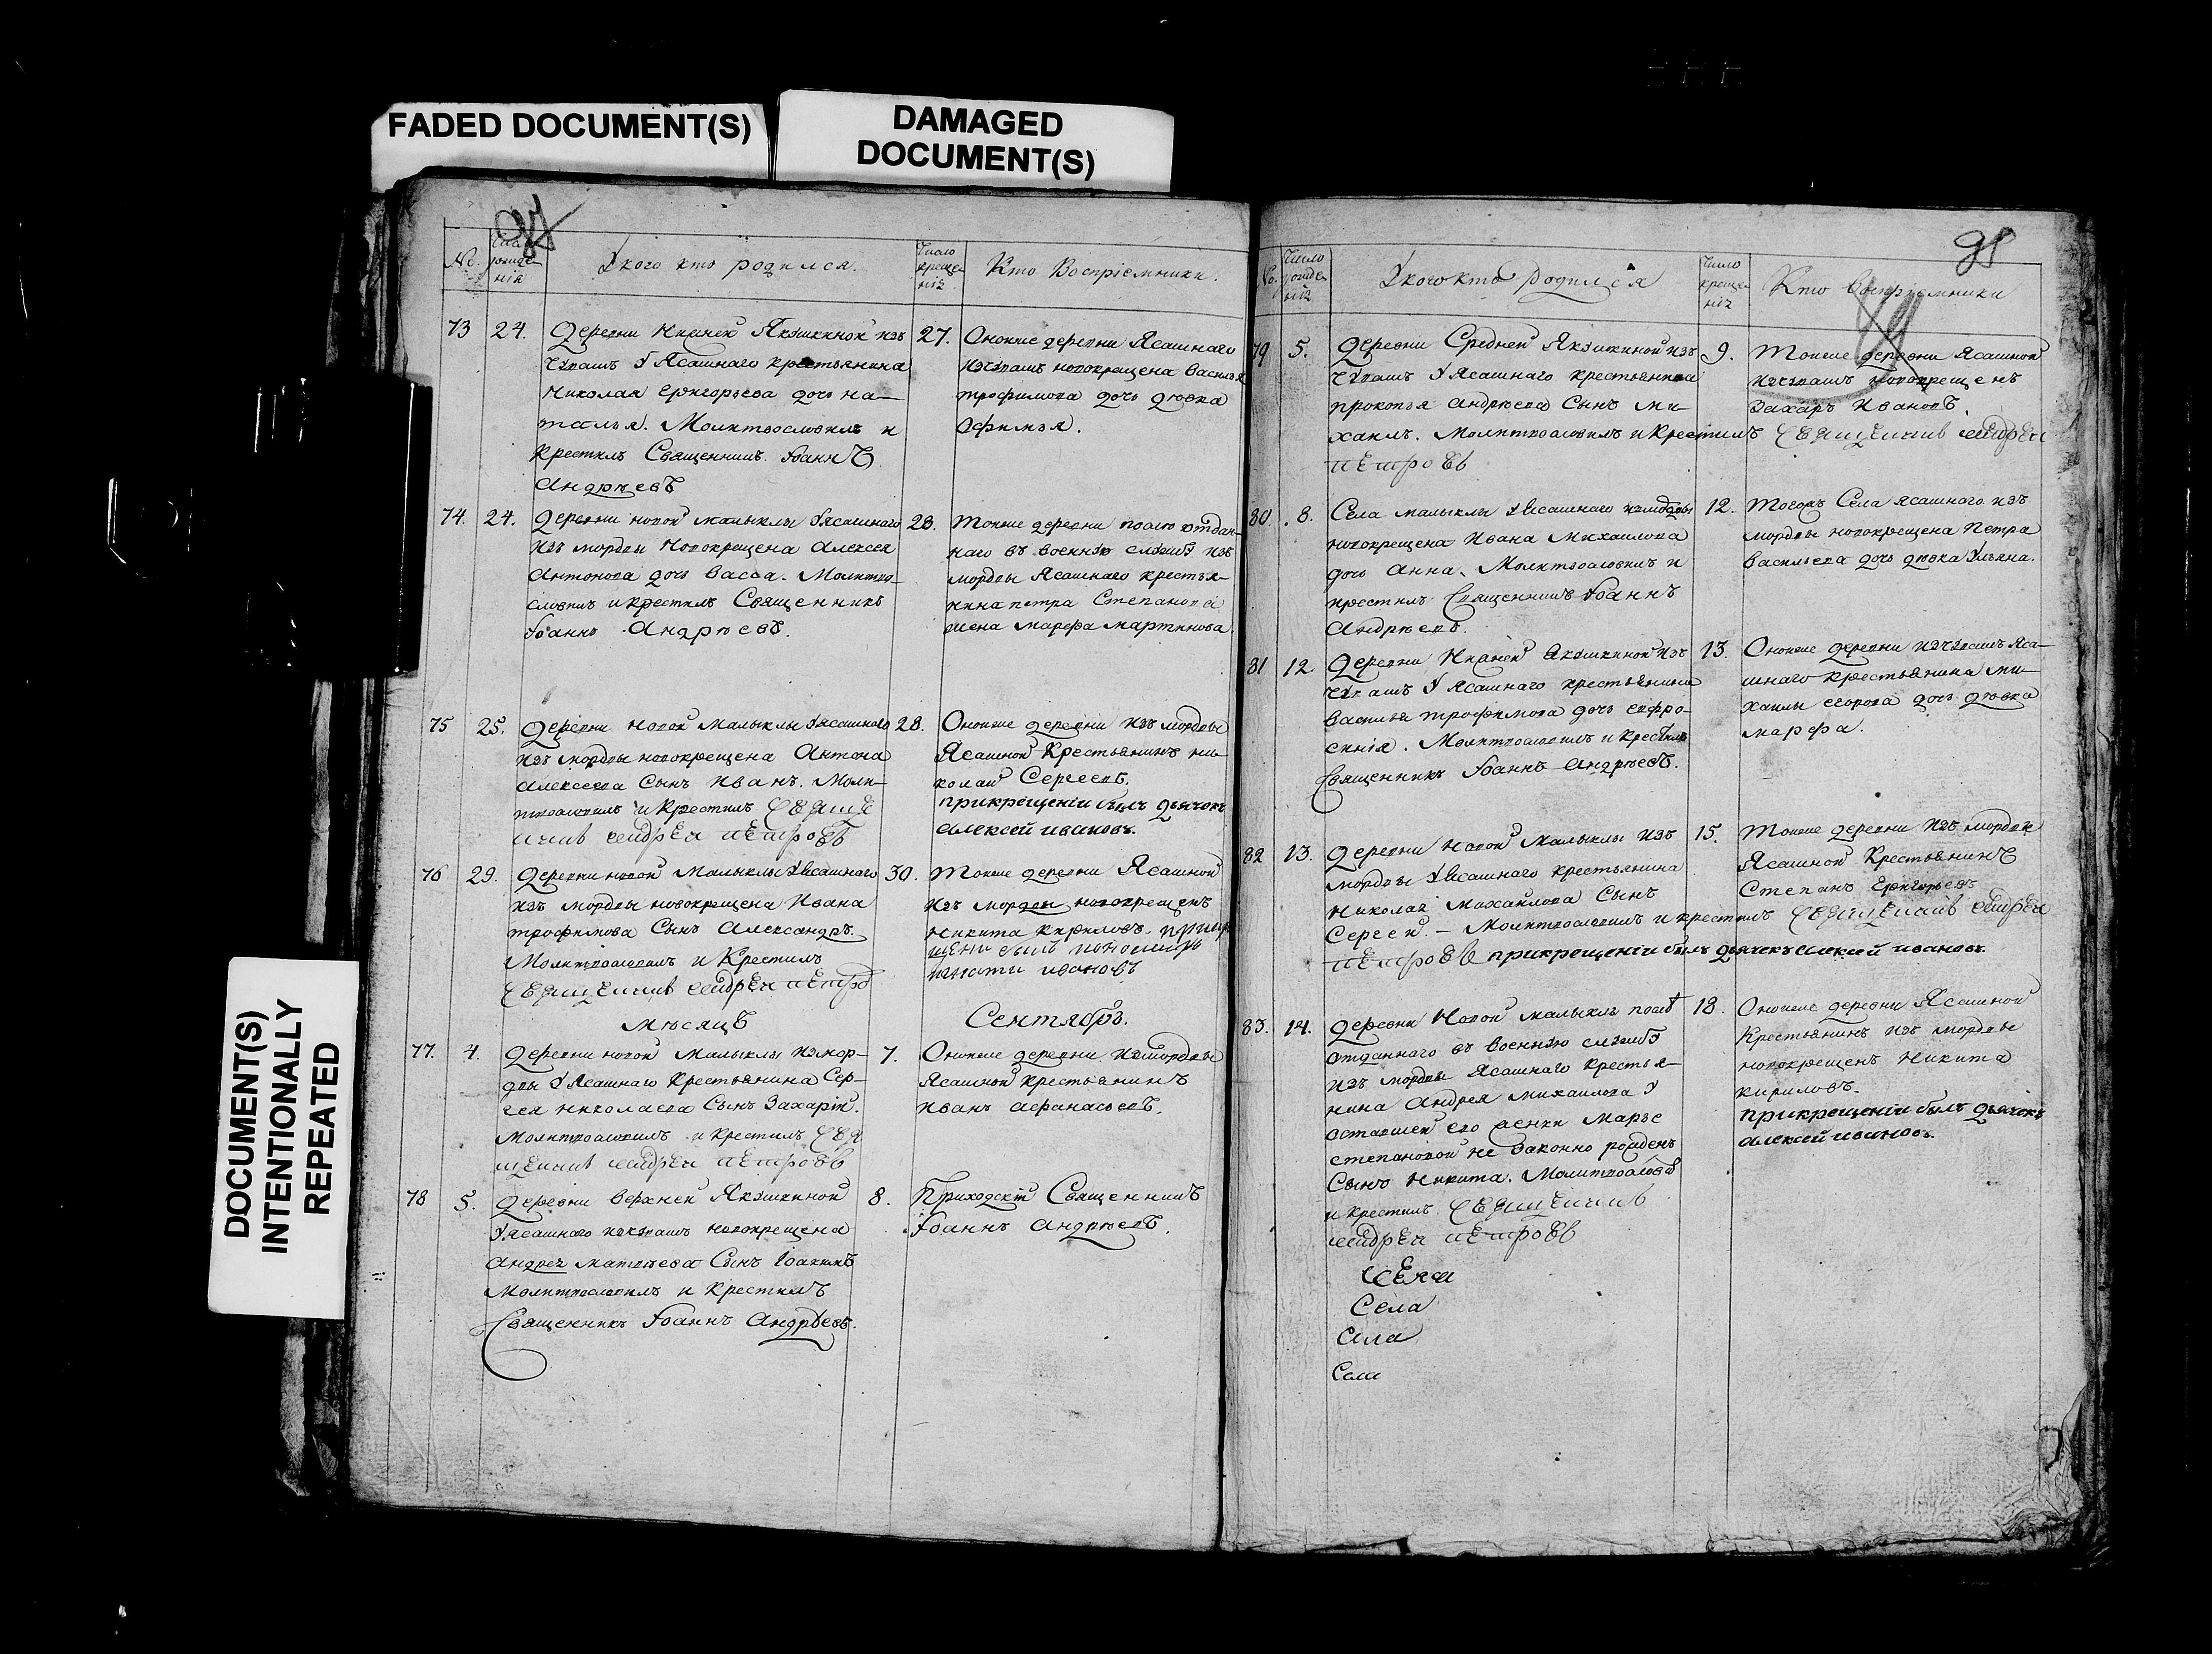 FADED DOCUMENT(S)
DAMAGED
DOCUMENT(S)
DOCUMENT(S)
INTENTIONALLY
REPEATED
№.
Число рожде-
нія
Укого кто родился.
Число
креще-
нія
Кто Воспріемники.
73 24. Деревни Нижней Якушкиной изъ
Чувашъ У Ясашнаго крестьянина
Николая Григорьева дочь на-
талья. Молитвословилъ и
крестилъ Священникъ Іоаннъ
Андрѣевъ
27. Оноиже деревни Ясашнаго
изчувашъ новокрещена Василья
трофимова дочь дѣвка
Офимья.
74. 24. Деревни новой малыклы Уясашнаго
изъ мордвы Новокрещена Алексея
Антонова дочь Васса. Молитво-
словилъ и крестилъ Священникъ
Іоаннъ Андрѣевъ.
28. Тоиже деревни отдан-
наго въ военную службу изъ
мордвы Ясашнаго крестья-
нина петра Степанова
жена марфа мартинова.
75 25. Деревни новой Малыклы Уясашнаго
изъ мордвы новокрещена Антона
Алексеева Сынъ Иванъ. Моли-
твословилъ и крестилъ Свяще
нникъ андрей петровъ
28. Оноиже деревни изъ мордвы
Ясашной Крестьянинъ ни-
колай Сергеевъ.
прикрещеніи былъ дьячокъ
алексей ивановъ.
76 29. Деревни новой Малыклы Уясашнаго
изъ мордвы новокрещена Ивана
трофимова Сынъ Александръ.
Молитвословилъ и Крестилъ
Священникъ андрей петро
30. Тоиже деревни Ясашной
изъ мордвы новокрещенъ
Никита кириловъ.
ивановъ
Мѣсяцъ Сентябръ.
77. 4. Деревни новой Малыклы измор-
двы У Ясашнаго Крестьянина Сер-
гея николаева Сынъ Захарій.
Молитвословилъ и крестилъ Свя
щенникъ андрей петровъ
7. Оноиже деревни измордвы
Ясашной крестьянинъ
Иванъ афанасьевъ.
78 5. Деревни верхней Якушкиной
Уясашнаго изчувашъ новокрещена
Андрея матвѣева Сынъ Іоакимъ
Молитвословилъ и крестилъ
Священникъ Іоаннъ Андрѣевъ.
8. Приходскій Священникъ
Іоаннъ Андрѣевъ.
95
№.
Число
рожде-
нія
Укого кто родился
Число
креще-
нія
Кто воспріемники
79 5. Деревни Средней Якушкиной изъ
Чувашъ У Ясашнаго крестьянина
прокопья андрѣева Сынъ ми-
хаилъ. Молитвословилъ и Крестилъ Священникъ андрей
петровъ
9. Тоиже деревни Ясашной
изчувашъ новокрещенъ
Захаръ Ивановъ.
80. 8. Села малыклы Уясашнаго измордвы
новокрещена Ивана Михаилова
дочь Анна. Молитвословилъ и
крестилъ Священникъ Іоаннъ
Андрѣевъ.
12. Тогожъ Села ясашнаго изъ
мордвы новокрещена Петра
Васильева дочь дѣвка Ульяна.
81 12. Деревни Нижней Якушкиной изъ
Чувашъ У Ясашнаго крестьянина
Василья трофимова дочь евфро-
синія. Молитвословилъ и крестилъ
Священникъ Іоаннъ Андрѣевъ.
13. Оноиже деревни изчувашъ Яса-
шнаго крестьянина ми-
хаилы егорова дочь дѣвка
марфа.
82 13. Деревни новой Малыклы изъ
мордвы Уясашнаго крестьянина
Николая Михаилова Сынъ
Сергей. — Молитвословилъ и крестилъ Священникъ андрей
петровъ прикрещеніи былъ дьячекъ алексей ивановъ.
15. Тоиже деревни изъ мордвы
Ясашной Крестьянинъ
Степанъ Григорьевъ
83. 14. Деревни Новой малыклы
отданнаго въ военную службу
изъ мордвы Ясашнаго крестья-
нина Андрея михаилова У
оставшей его женки Марье
степановой не законно рожденъ
Сынъ Никита. Молитвослови
и крестилъ Священникъ
андрей петровъ
18. Оноиже деревни Ясашной
Крестьянинъ изъ мордвы
новокрещенъ Никита
кириловъ.
прикрещеніи былъ дьячекъ
алексей ивановъ.
Села
Села
Села